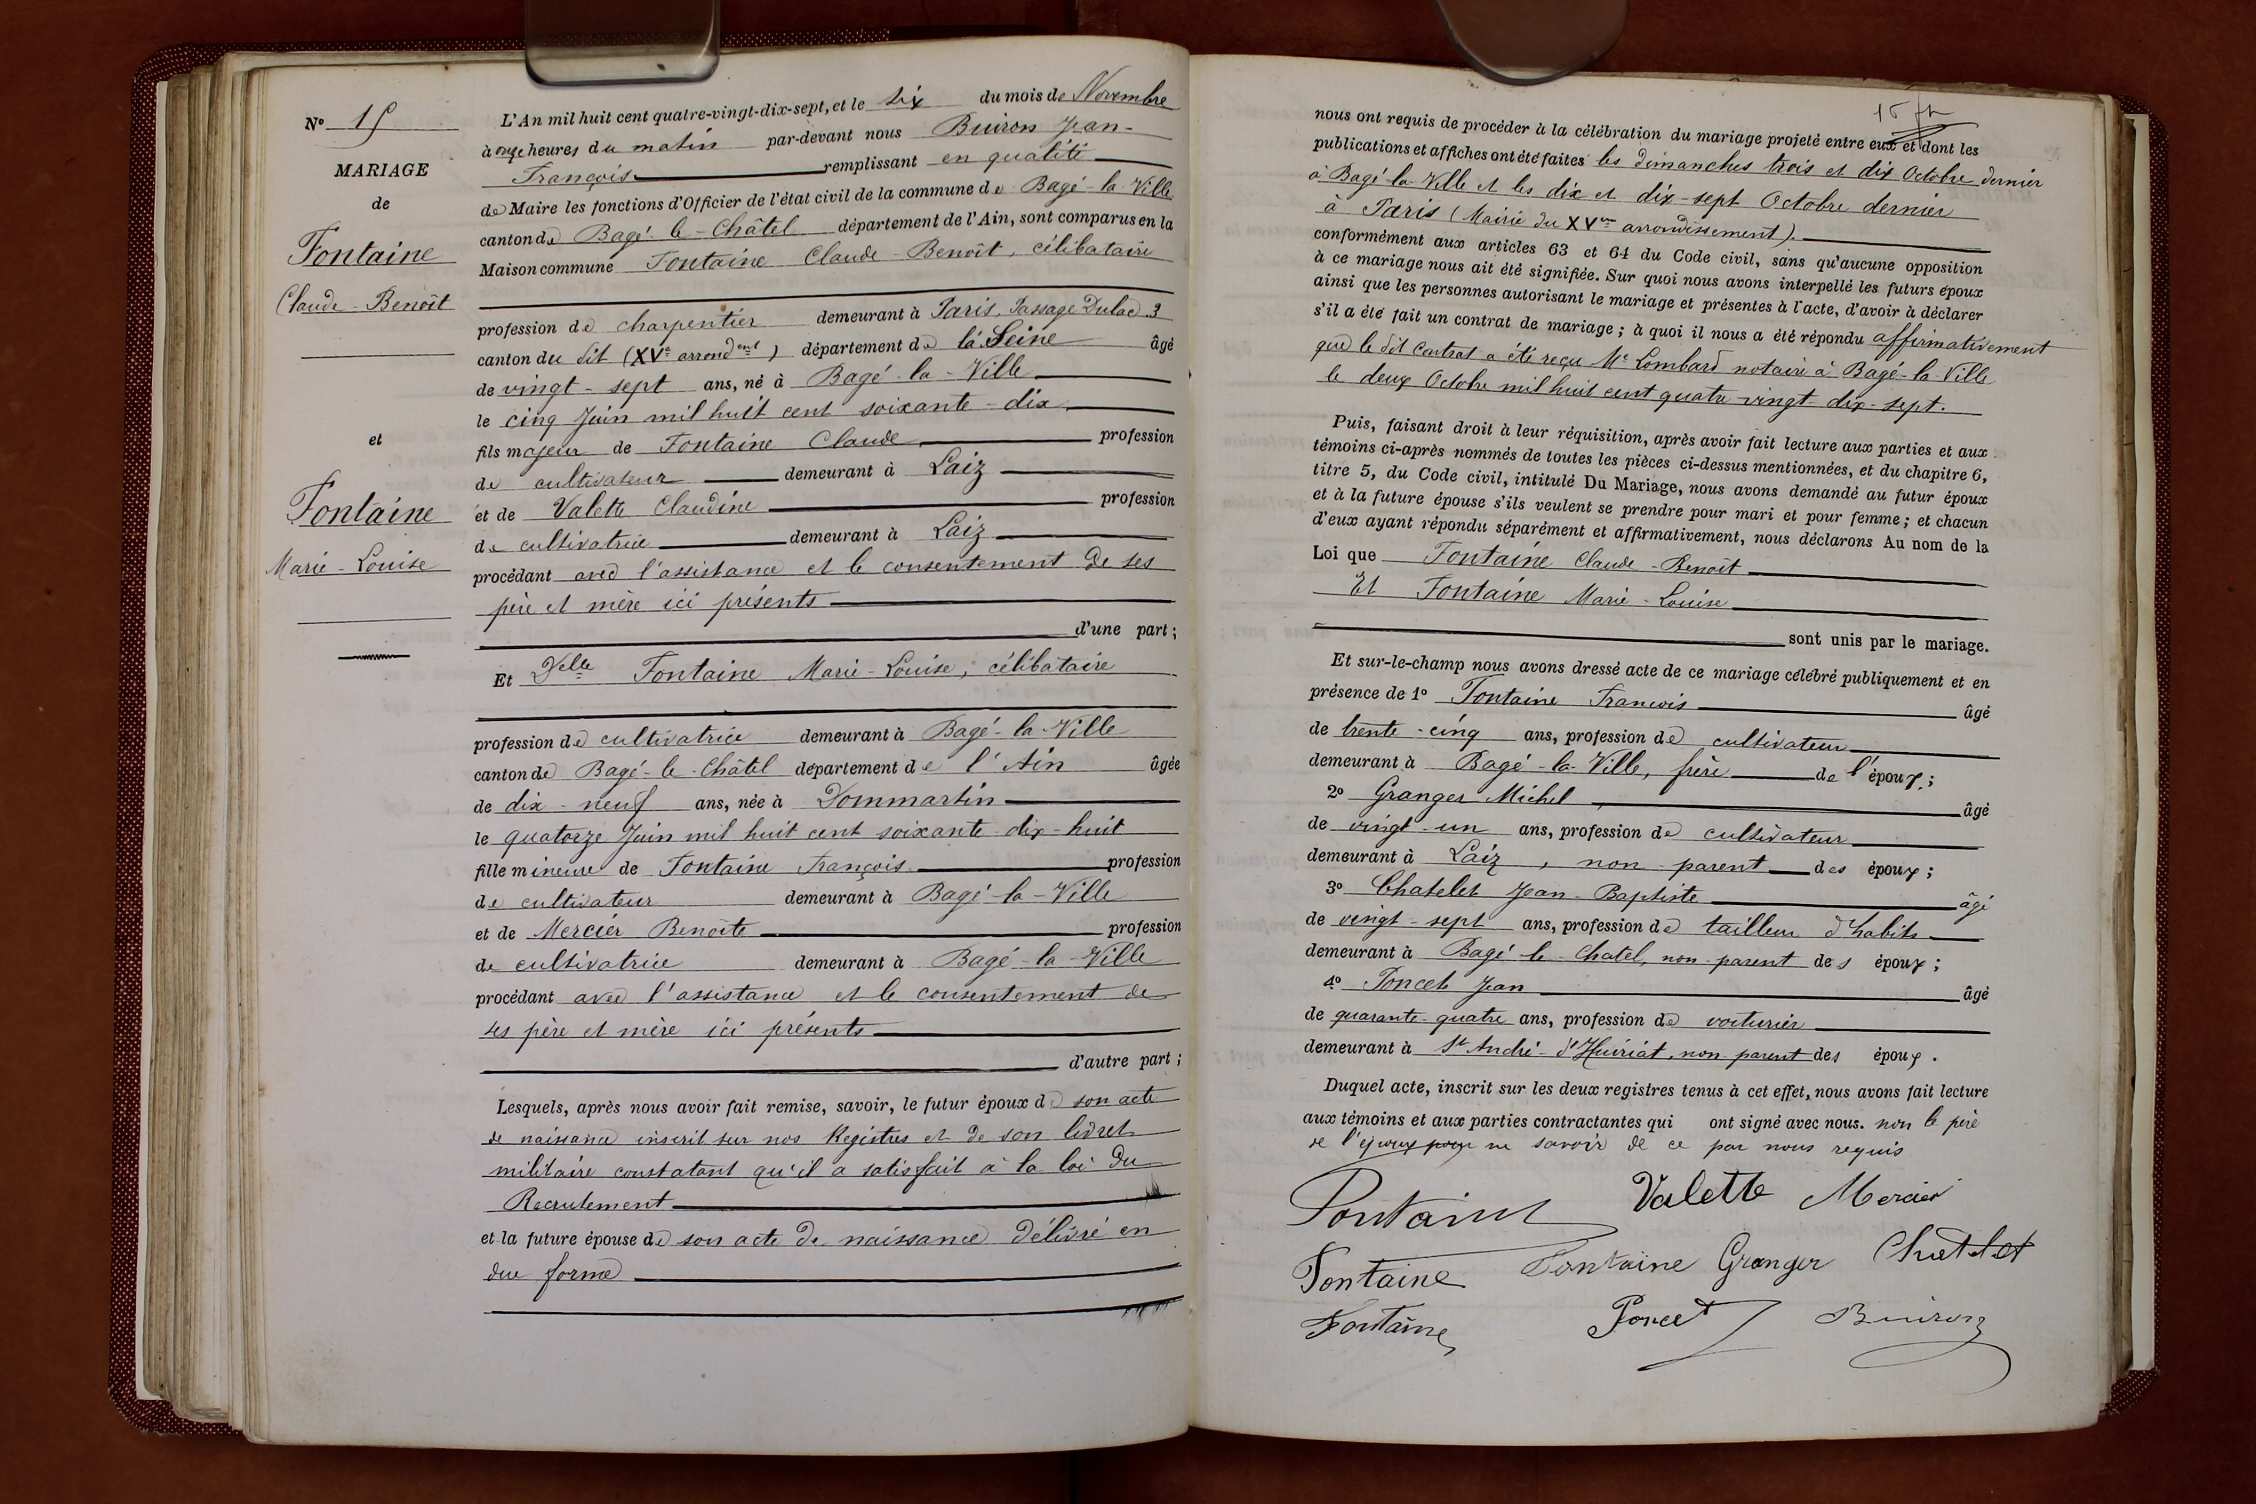 N° 15
MARIAGE
de
Fontaine
Claude-Benoît
et
Fontaine
Marie-Louise
L'An mil huit cent quatre-vingt-dix-sept, et le six du mois de Novembre
à onze heures du matin par-devant nous Buiron Jean-
François remplissant en qualité
de Maire les fonctions d'Officier de l'état civil de la commune de Bagé-la-Ville
canton de Bagé-le-Châtel département de l'Ain, sont comparus en la
Maison commune Fontaine Claude-Benoît, célibataire
profession de charpentier demeurant à Paris, Passage Dulac 3
canton du dit (XVe arrondent) département de la Seine âgé
de vingt-sept ans, né à Bagé-la-Ville
le cinq Juin mil huit cent soixante-dix
fils majeur de Fontaine Claude profession
de cultivateur demeurant à Laiz
et de Valette Claudine profession
de cultivatrice demeurant à Laiz
procédant avec l'assistance et le consentement de ses
père et mère ici présents
d'une part;
Et Delle Fontaine Marie-Louise, célibataire
profession de cultivatrice demeurant à Bagé-la-Ville
canton de Bagé-le-Châtel département de l'Ain âgée
de dix-neuf ans, née à Dommartin
le quatorze Juin mil huit cent soixante-dix-huit
fille mineure de Fontaine François profession
de cultivateur demeurant à Bagé-la-Ville
et de Mercier Benoîte profession
de cultivatrice demeurant à Bagé-la-Ville
procédant avec l'assistance et le consentement de
ses père et mère ici présents
d'autre part;
Lesquels, après nous avoir fait remise, savoir, le futur époux de son acte
de naissance inscrit sur nos Registres et de son livret
militaire constatant qu'il a satisfait à la loi du
Recrutement
et la future épouse de son acte de naissance délivré en
due forme
15
nous ont requis de procéder à la célébration du mariage projeté entre eux et dont les
publications et affiches ont été faites les dimanches trois et dix Octobre dernier
à Bagé-la-Ville et les dix et dix-sept Octobre dernier
à Paris (Mairie du XVme arrondissement).
conformément aux articles 63 et 64 du Code civil, sans qu'aucune opposition
à ce mariage nous ait été signifiée. Sur quoi nous avons interpellé les futurs époux
ainsi que les personnes autorisant le mariage et présentes à l'acte, d'avoir à déclarer
s'il a été fait un contrat de mariage; à quoi il nous a été répondu affirmativement
que le dit Contrat a été reçu Me Lombard notaire à Bagé-la-Ville
le deux Octobre mil huit cent quatre-vingt-dix-sept.
Puis, faisant droit à leur réquisition, après avoir fait lecture aux parties et aux
témoins ci-après nommés de toutes les pièces ci-dessus mentionnées, et du chapitre 6,
titre 5, du Code civil, intitulé Du Mariage, nous avons demandé au futur époux
et à la future épouse s'ils veulent se prendre pour mari et pour femme; et chacun
d'eux ayant répondu séparément et affirmativement, nous déclarons Au nom de la
Loi que Fontaine Claude-Benoît
Et Fontaine Marie-Louise
sont unis par le mariage.
Et sur-le-champ nous avons dressé acte de ce mariage célébré publiquement et en
présence de 1° Fontaine Francois âgé
de trente-cinq ans, profession de cultivateur
demeurant à Bagé-la-Ville, frère de l'époux;
2° Granger Michel âgé
de vingt-un ans, profession de cultivateur
demeurant à Laiz, non parent des époux;
3° Chatelet Jean-Baptiste âgé
de vingt-sept ans, profession de tailleur d'habits
demeurant à Bagé-le-Chatel, non-parent des époux;
4° Poncet Jean âgé
de quarante-quatre ans, profession de voiturier
demeurant à St André-d'Huiriat, non-parent des époux.
Duquel acte, inscrit sur les deux registres tenus à cet effet, nous avons fait lecture
aux témoins et aux parties contractantes qui ont signé avec nous. non le père
de l'époux pour ne savoir de ce par nous requis
Fontaine Valette Mercier
Fontaine Fontaine Granger Chatelet
Fontaine Poncet Buiron